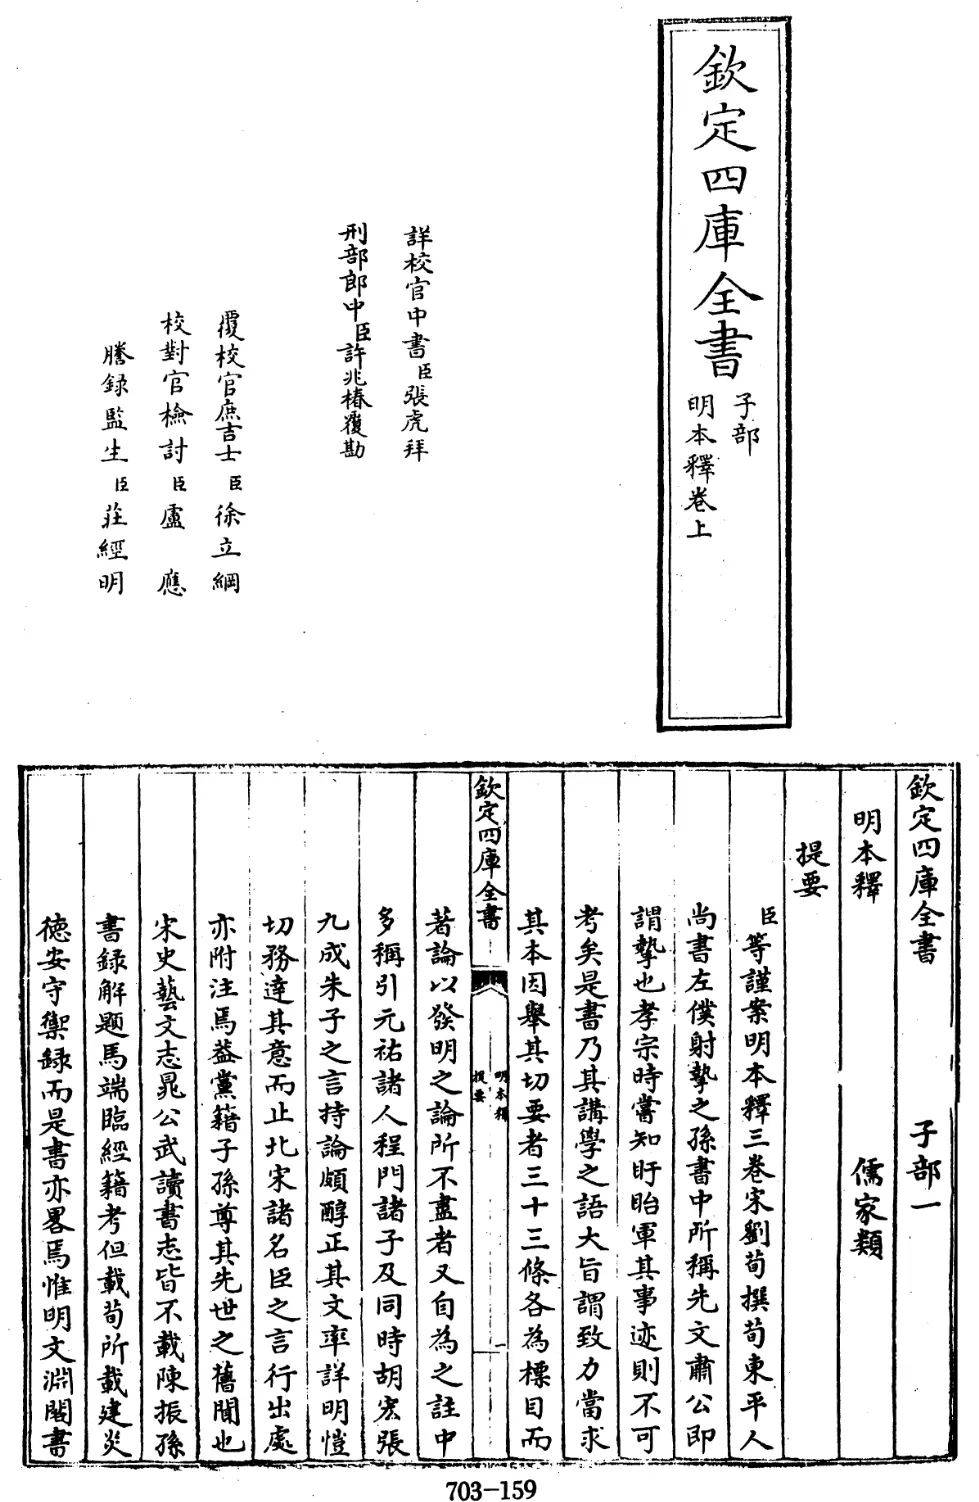 欽定四庫全書
子部
明本釋卷上
詳校官中書臣張虎拜
刑部郎中臣許兆椿覆勘
覆校官庶吉士臣徐立綱
校對官檢討臣盧應
謄錄監生臣莊經明
欽定四庫全書 子部一
明本釋 儒家類
提要
臣等謹案明本釋三卷宋劉荀撰荀東平人
尚書左僕射摯之孫書中所稱先文肅公即
謂摯也孝宗時嘗知盱眙軍其事迹則不可
考矣是書乃其講學之語大旨謂致力當求
其本因舉其切要者三十三條各為標目而
欽定四庫全書
明本釋
提要
一
著論以發明之論所不盡者又自為之註中
多稱引元祐諸人程門諸子及同時胡宏張
九成朱子之言持論頗醇正其文率詳明愷
切務達其意而止北宋諸名臣之言行出處
亦附注焉蓋黨籍子孫尊其先世之舊聞也
宋史藝文志晁公武讀書志皆不載陳振孫
書錄解題馬端臨經籍考但載荀所載建炎
德安守禦錄而是書亦畧焉惟明文淵閣書
703-159